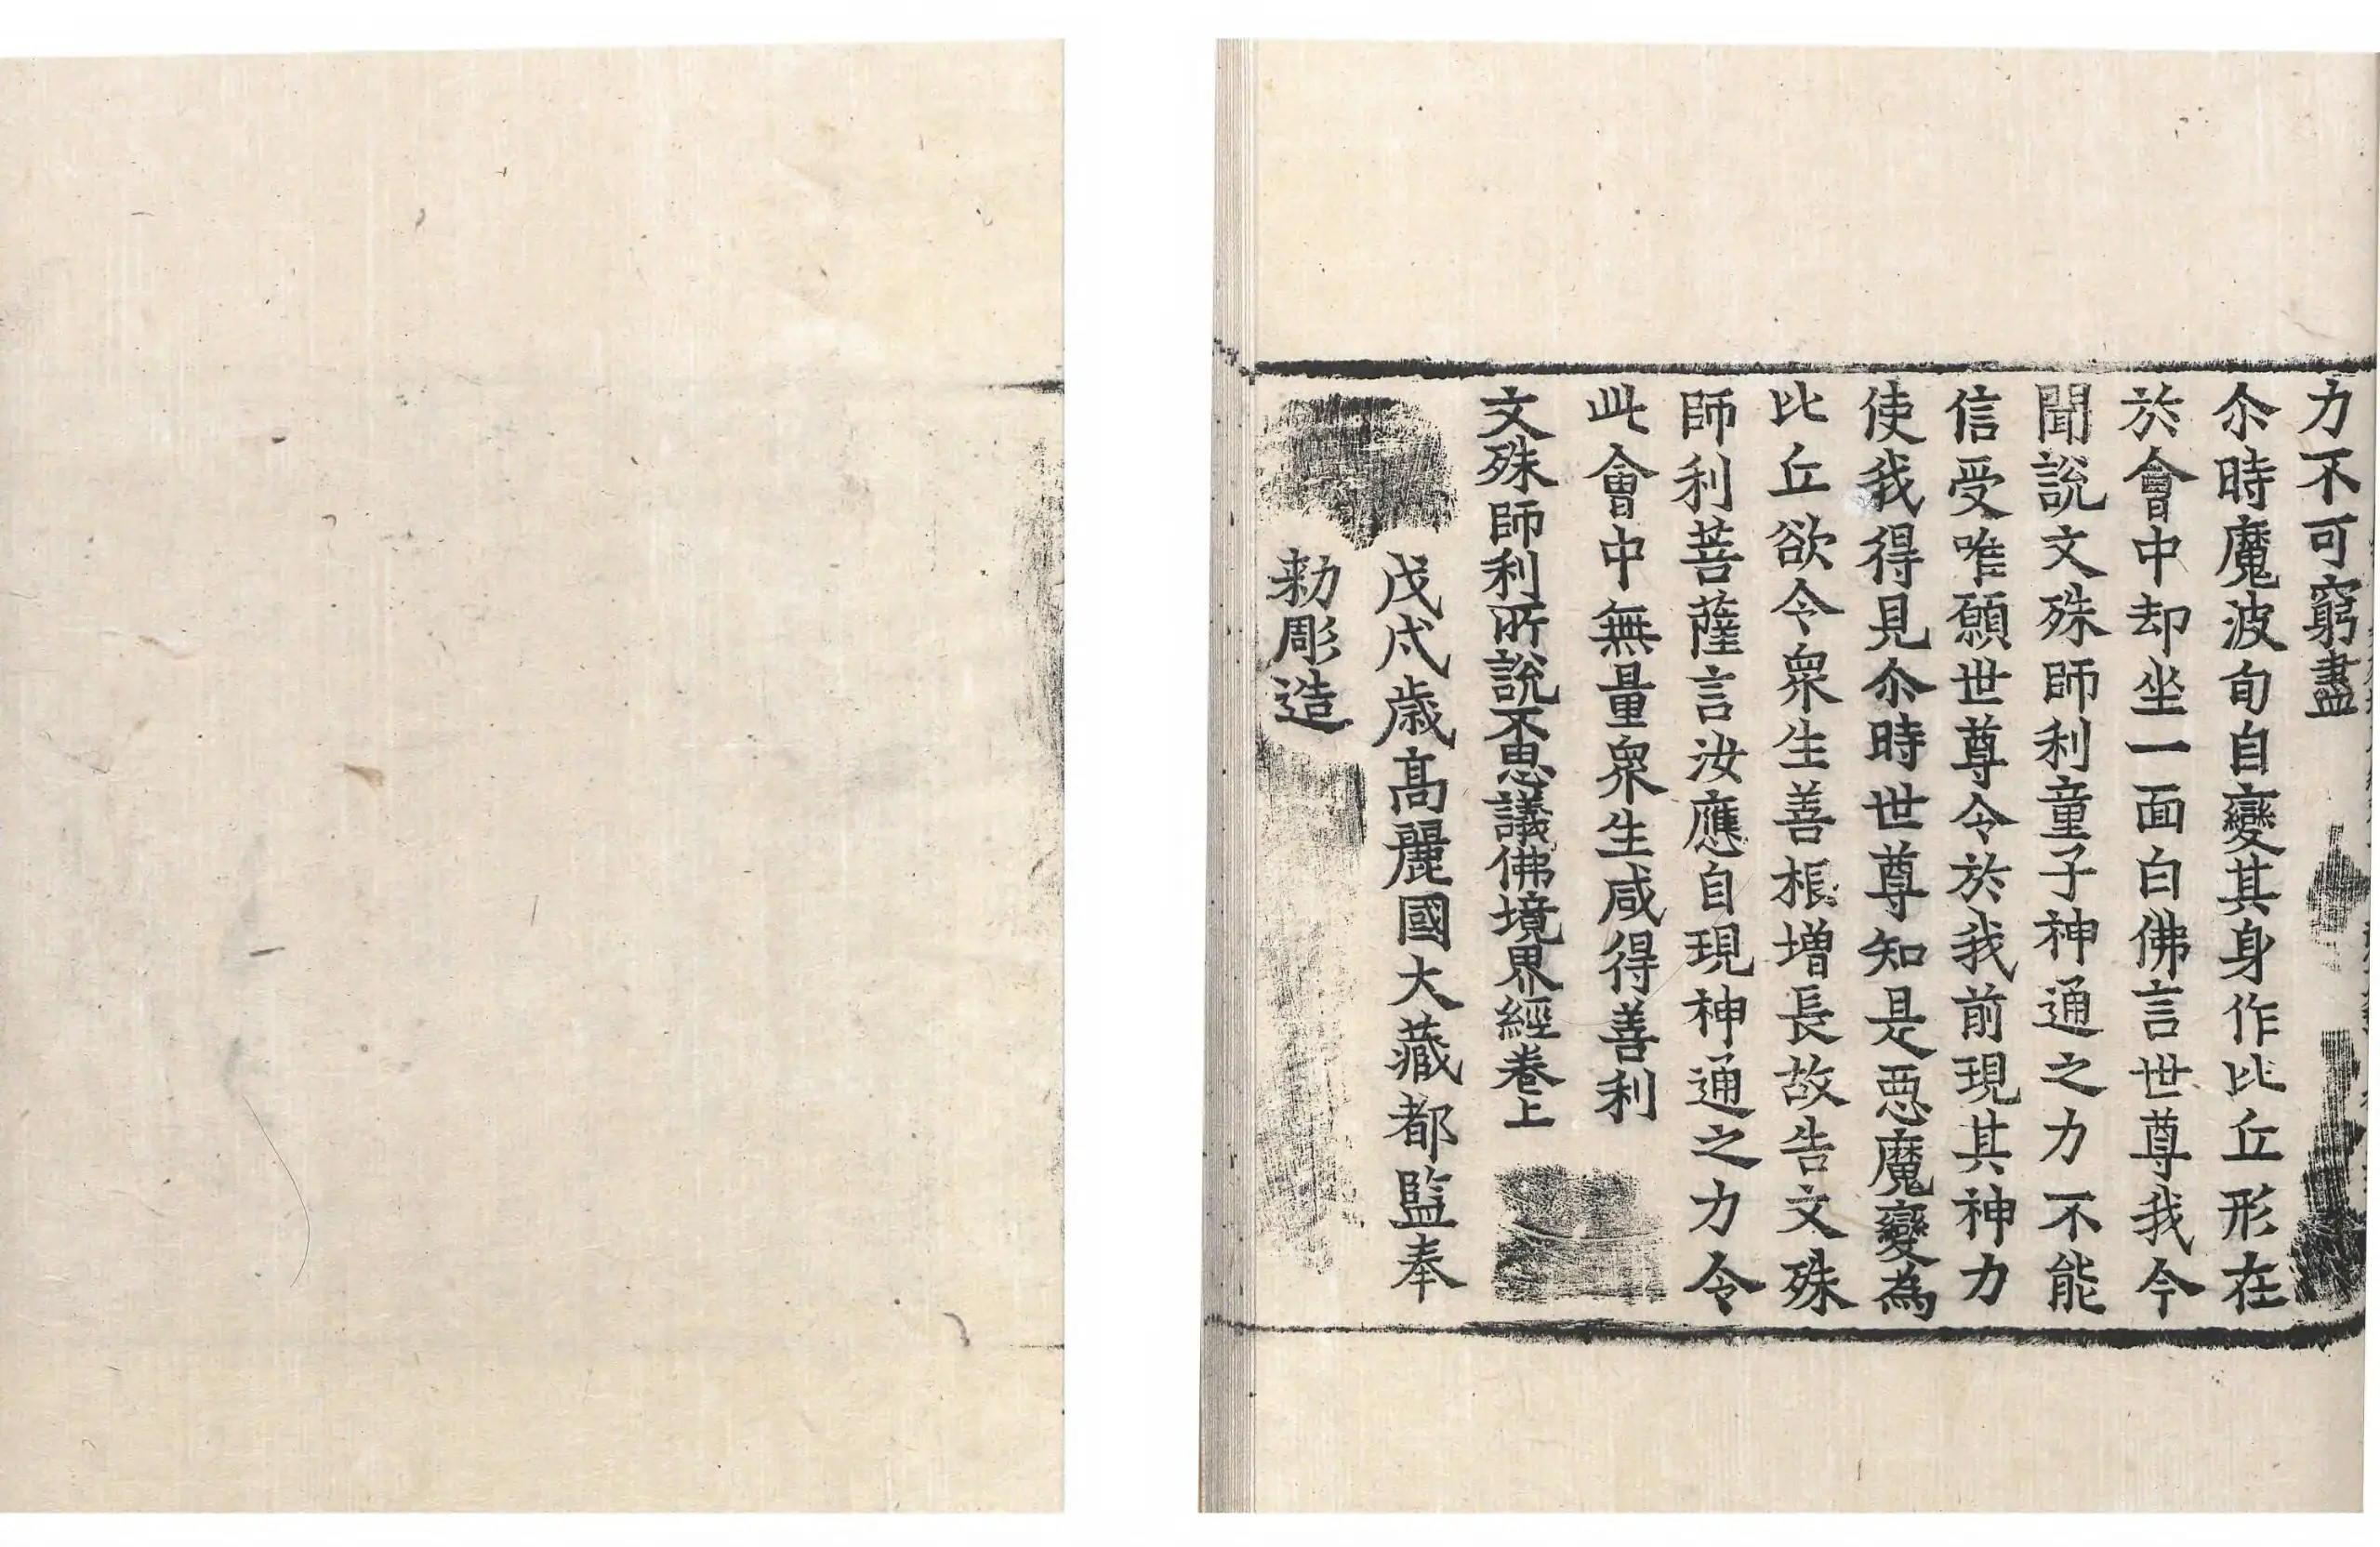 力不可窮盡
尒時魔波旬自變其身作比丘形在
於會中却坐一面白佛言世尊我今
聞說文殊師利童子神通之力不能
信受唯願世尊令於我前現其神力
使我得見尒時世尊知是惡魔變為
比丘欲令衆生善根增長故告文殊
師利菩薩言汝應自現神通之力令
此會中無量衆生咸得善利
文殊師利所說不思議佛境界經卷上
戊戌歲高麗國大藏都監奉
勅彫造